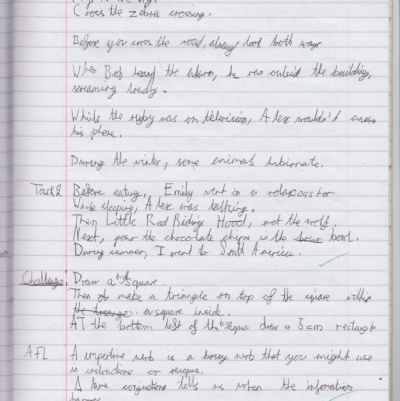 Cross the zebra crossing.
Before you cross the road, always look both ways
When Bob heard the alarm, he ran outside the building,
screaming loudly.
While the rugby was on television, Alex wouldn't answer
his phone.
During the winter, some animals hibernate.
Task 2 Before eating, Emily went in a
While sleeping, Alex was talking.
Then Little Red Riding Hood, met the wolf.
Next, pour the chocolate chips in the bowl.
During summer, I went to South America.
Challenge: Draw a big square.
Then make a triangle on top of the square within
a square inside.
AT the bottom left of the draw a 5cm rectangle
AFL A imperative verb is a bossy verb that you might use
in instructions or recipes.
A time conjunctions tells us when the information